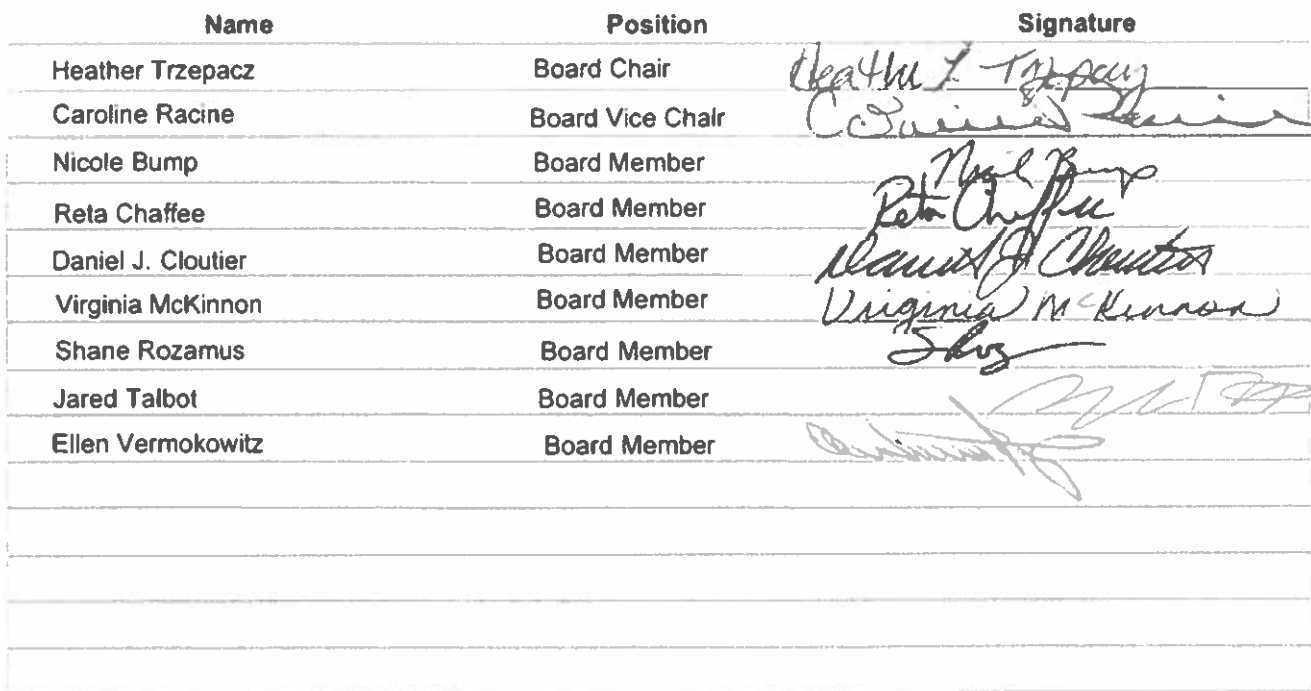 Name Position Signature
Heather Trzepacz Board Chair Heather L Trzepacz
Caroline Racine Board Vice Chair Racine
Nicole Bump Board Member Nicole Bump
Reta Chaffee Board Member Reta Chaffee
Daniel J. Cloutier Board Member Daniel J Cloutier
Virginia McKinnon Board Member Virginia McKinnon
Shane Rozamus Board Member SRoz
Jared Talbot Board Member
Ellen Vermokowitz Board Member